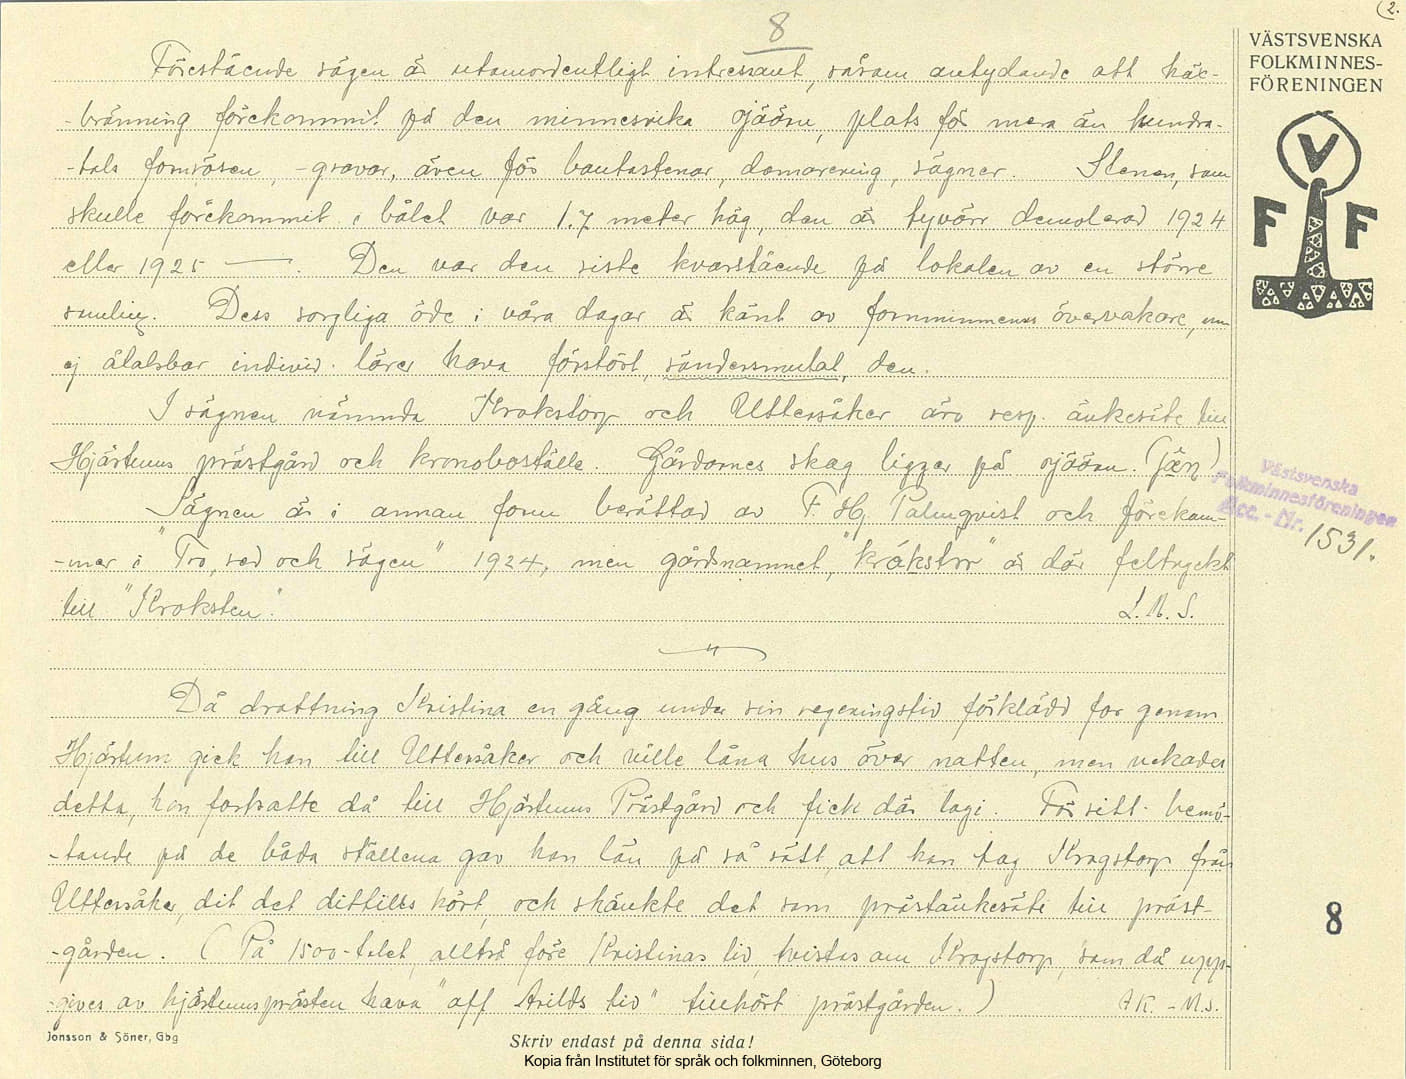 (2.
8
VÄSTSVENSKA
FOLKMINNES-
FÖRENINGEN
V
F F
Förestående sägen är utomordentligt intressant, såsom antydande att häx-
-bränning förekommit på den minnesrika sjöön, plats för mera än hundra-
-tals fornrösen, -gravar, även för bautastenar, domarering, sägner. Stenen, som
skulle förekommit i bålet var 1.7 meter hög, den är tyvärr demolerad 1924
eller 1925 —. Den var den siste kvarstående på lokalen av en större
samling. Dess sorgliga öde i våra dagar är känt av fornminnenas övervakare, en
ej åtalsbar individ lärer hava förstört, söndersmulat, den.
I sägnen nämnda Krokstorp och Uttersåker äro resp. änkesäte till
Hjärtums prästgård och kronoboställe. Gårdarnes skog ligger på sjöön.
Sägnen är i annan form berättad av F. Hj. Palmqvist och förekom-
-mer i "Tro, sed och sägen" 1924, men gårdsnamnet, är där feltryckt
till "Kroksten".
L. M. S.
— " —
Då drottning Kristina en gång under sin regeringstid förklädd for genom
Hjärtum gick hon till Uttersåker och ville låna hus över natten, men nekades
detta, hon fortsatte då till Hjärtums Prästgård och fick där logi. För sitt bemö-
-tande på de båda ställena gav hon lön på så sätt, att hon tog Krogstorp från
Uttersåker, dit det dittills hört, och skänkte det som prästänkesäte till präst-
-gården. (På 1500-talet, alltså före Kristinas tid, tvistas om Krogstorp, som då upp-
-gives av hjärtumsprästen hava "aff Arilds tid" tillhört prästgården.)
A K. - M.S.
Västsvenska
Folkminnesföreningen
Acc. - Nr. 1531.
8
Jonsson & Söner, Gbg
Skriv endast på denna sida!
Kopia från Institutet för språk och folkminnen, Göteborg